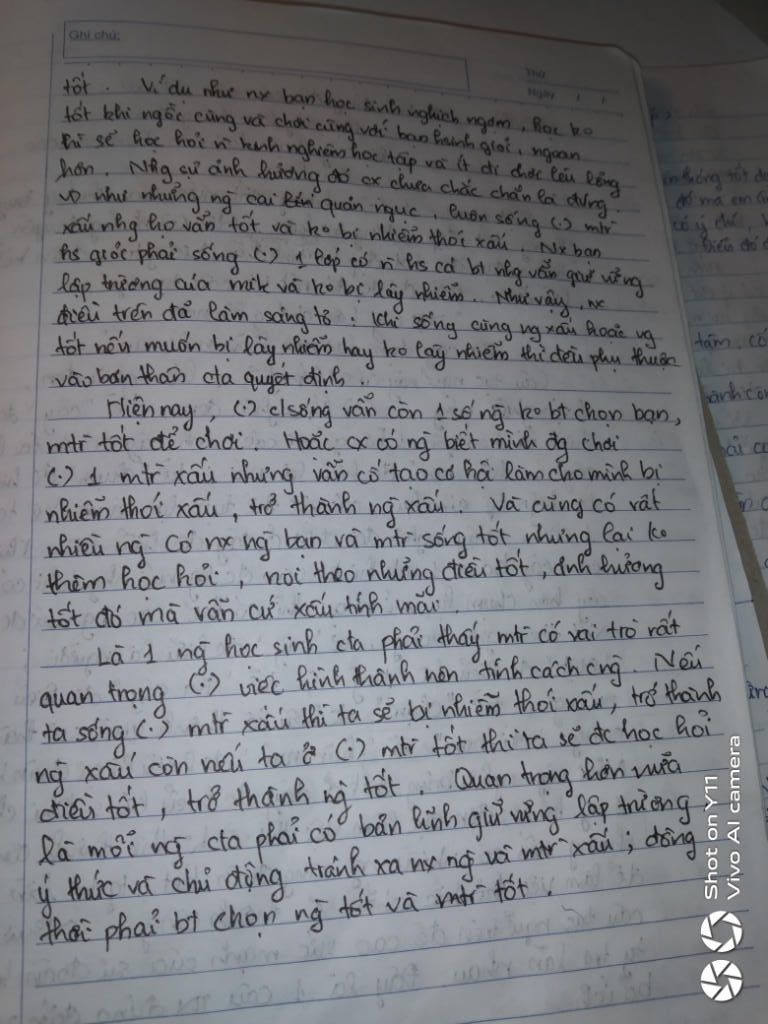 Ghi chú:
Thứ
Ngày / /
tốt. Ví dụ như nx bạn học sinh nghịch ngợm, học ko
tốt khi ngồi cùng và chơi cùng với bạn thành giỏi, ngoan
thì sẽ học hỏi n kinh nghiệm học tập và ít đi chơi lêu lổng
hơn. Nhg sự ảnh hưởng đó cx chưa chắc chắn là đúng.
VD như những ng cai quản ngục, luôn sống (.) mtr
xấu nhg họ vẫn tốt và ko bị nhiễm thói xấu. Nx bạn
hs phải sống (.) 1 lớp có n hs cá bt nhg vẫn giữ vững
lập trường của mik và ko bị lây nhiễm. Như vậy, nx
điều trên đã làm sáng tỏ: Khi sống cùng ng xấu hoặc ng
tốt nếu muốn bị lây nhiễm hay ko lây nhiễm thì đều phụ thuộc
vào bản thân cta quyết định.
Hiện nay, (.) c/sống vẫn còn 1 số ng ko bt chọn bạn,
mtr tốt để chơi. Hoặc cx có ng biết mình đg chơi
(.) 1 mtr xấu nhưng vẫn cố tạo cơ hội làm cho mình bị
nhiễm thói xấu, trở thành ng xấu. Và cũng có rất
nhiều ng có nx ng bạn và mtr sống tốt nhưng lại ko
thèm học hỏi, noi theo những điều tốt, ảnh hưởng
tốt đó mà vẫn cứ xấu tính mãi.
Là 1 ng học sinh cta phải thấy mtr có vai trò rất
quan trọng (.) việc hình thành nên tính cách cng. Nếu
ta sống (.) mtr xấu thì ta sẽ bị nhiễm thói xấu, trở thành
ng xấu còn nếu ta ở (.) mtr tốt thì ta sẽ đc học hỏi
điều tốt, trở thành ng tốt. Quan trọng hơn nữa
là mỗi ng cta phải có bản lĩnh giữ vững lập trường,
ý thức và chủ động tránh xa nx ng và mtr xấu; đồng
thời phải bt chọn ng tốt và mtr tốt.
Shot on Y11
Vivo AI camera